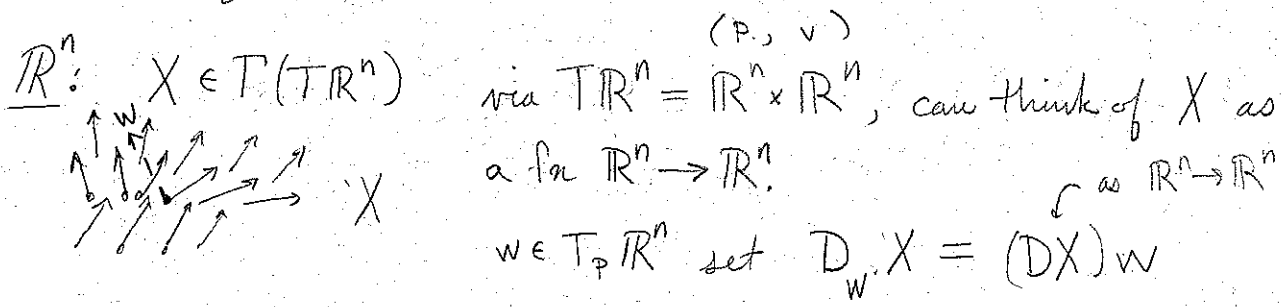 (p, v)
ℝⁿ: X ∈ Γ(Tℝⁿ) via Tℝⁿ = ℝⁿ × ℝⁿ, can think of X as
w a fn ℝⁿ → ℝⁿ.
X as ℝⁿ → ℝⁿ
w ∈ Tₚℝⁿ set D_w X = (DX)w